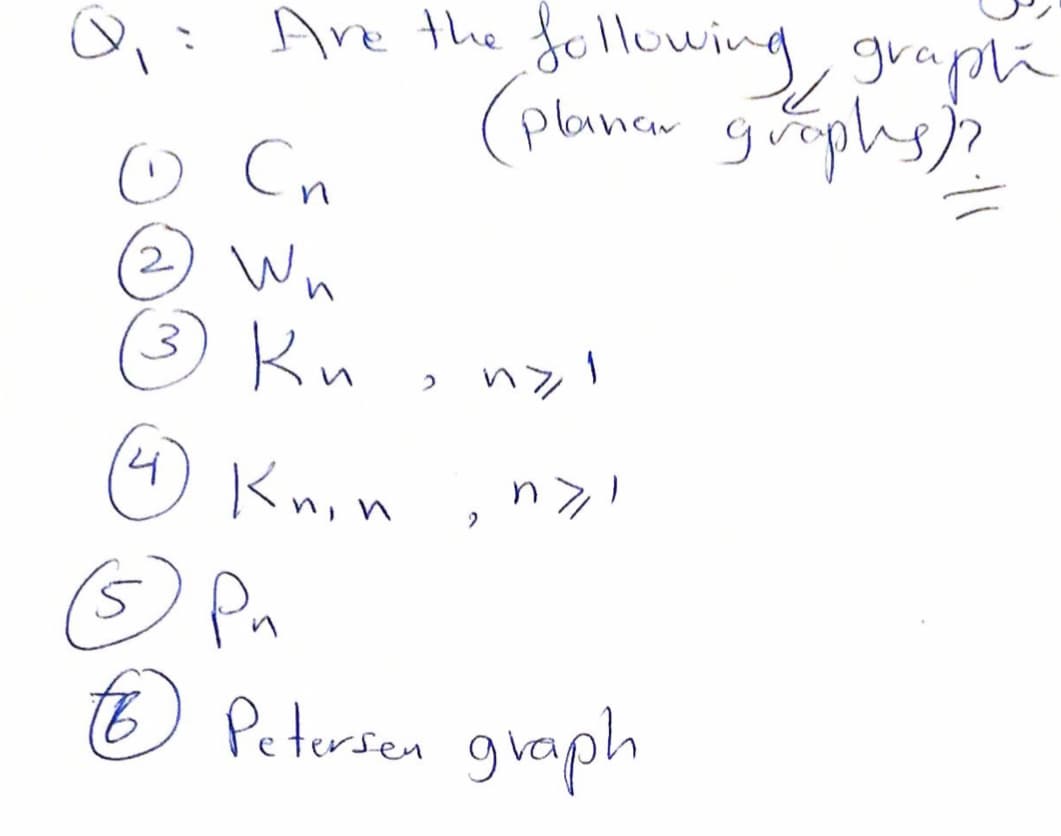 Q₁: Are the following graph
(planar graphs)?
① Cₙ
② Wₙ
③ Kₙ , n ⩾ 1
④ Kₙ,ₙ , n ⩾ 1
⑤ Pₙ
⑥ Petersen graph